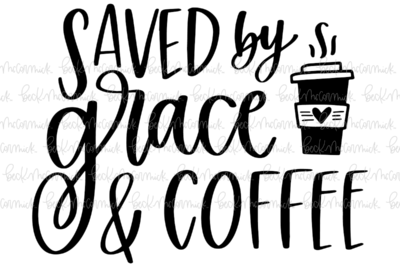 SAVED by
grace
& COFFEE